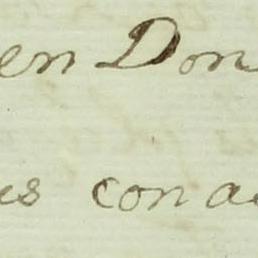 en Don
us con a